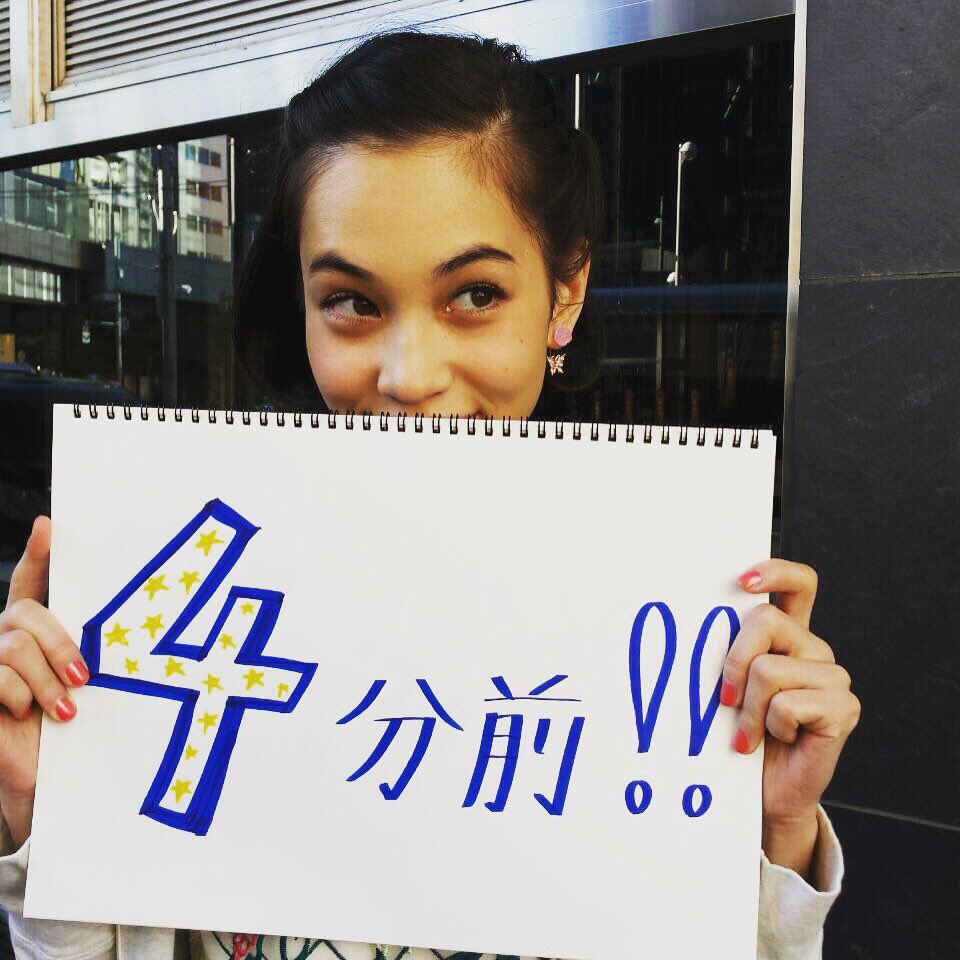 4分前!!